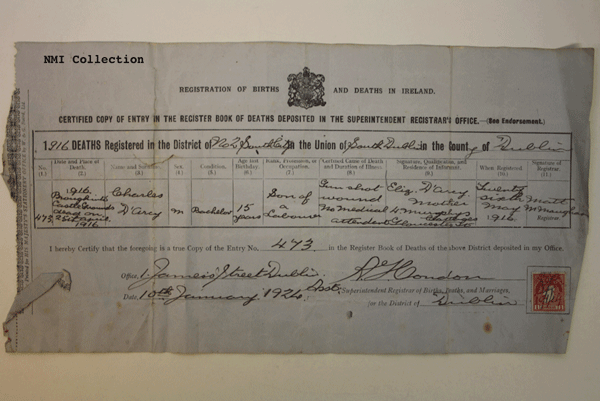 NMI Collection
REGISTRATION OF BIRTHS AND DEATHS IN IRELAND.
CERTIFIED COPY OF ENTRY IN THE REGISTER BOOK OF DEATHS DEPOSITED IN THE SUPERINTENDENT REGISTRAR'S OFFICE.—(See Endorsement.)
1916 DEATHS Registered in the District of No 2 South City in the Union of South Dublin in the County of Dublin
No. (1.) Date and Place of Death. (2.) Name and Surname. (3.) Sex. (4.) Condition. (5.) Age last Birthday. (6.) Rank, Profession, or Occupation. (7.) Certified Cause of Death and Duration of Illness. (8.) Signature, Qualification, and Residence of Informant. (9.) When Registered. (10.) Signature of Registrar. (11.)
473 1916 Brought into Castle Grounds dead on April 1916 Charles D'Arcy M Bachelor 15 years Son of a Labourer Gun shot wound No medical attendant Eliz. D'Arcy Mother 4 Murphys Cottages Gloucester St Twenty sixth May 1916 Registrar.
I hereby Certify that the foregoing is a true Copy of the Entry No. 473 in the Register Book of Deaths of the above District deposited in my Office.
Office, James's Street Dublin.
Date, 10th January 1924 Superintendent Registrar of Births, Deaths, and Marriages,
for the District of Dublin